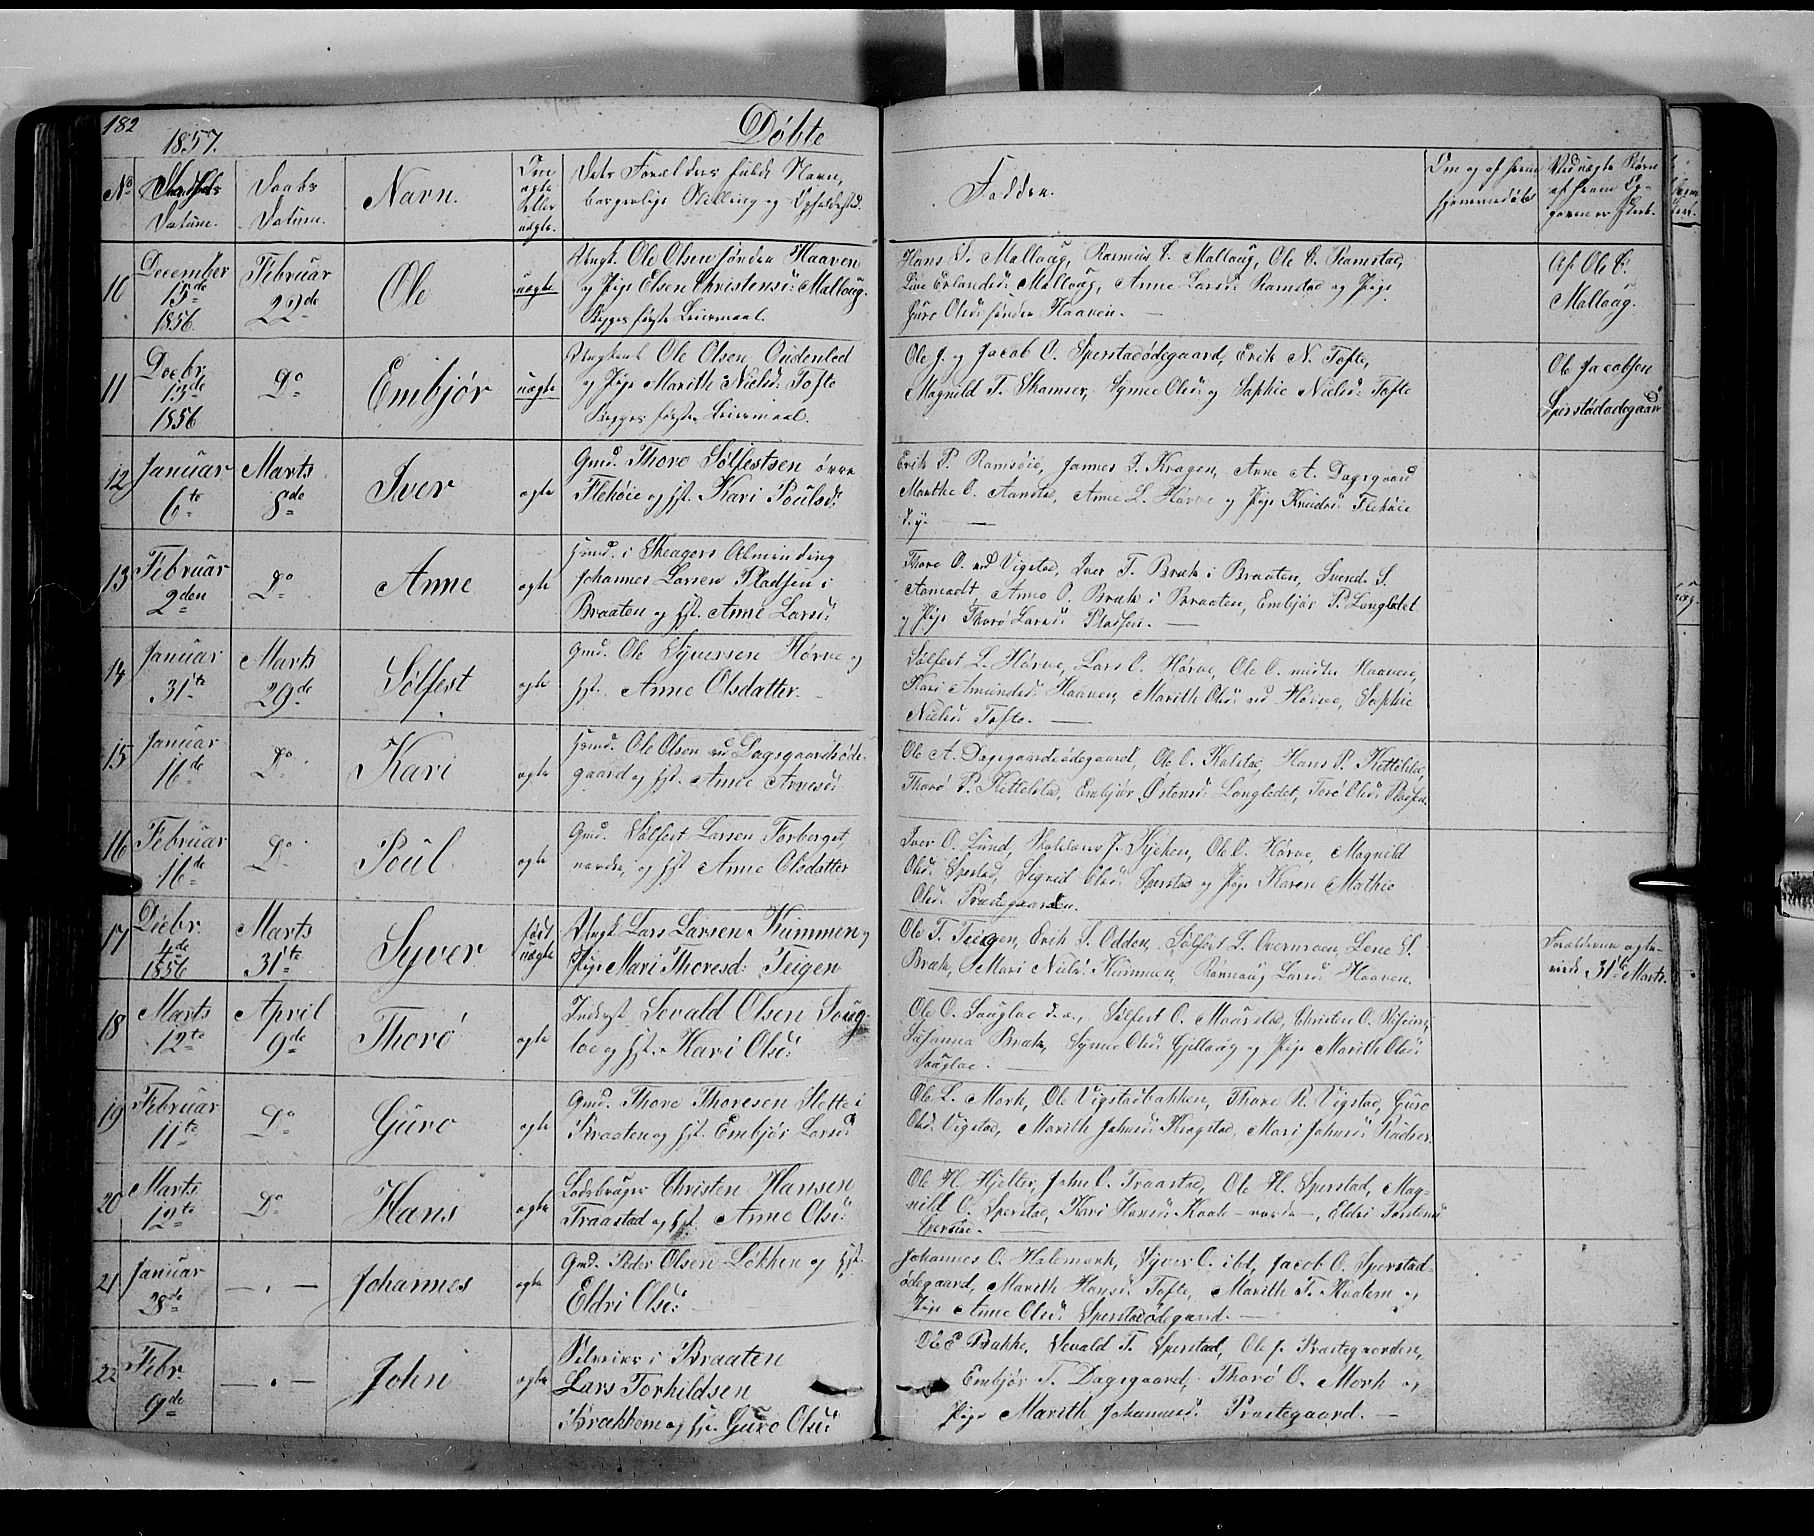 182
1857.
Döbte
No
Datum.
Daabs
Datum.
Navn.
Om
ægte
eller
uægte.
Dets Forældres fulde Navn,
borgerlige Stilling og Opholdssted.
Faddere.
Om og af hvem
hjemmedöbt
Ved uægte Börn
af hvem
10
December
15de
1856.
Februar
22de
Ole
uægte
Ungk. Ole Olsen söndre Haaven
og Pige Elsen Christensd: Mallaug.
Begges förste Leiermaal.
Hans O. Mallaug, Rasmus C. Mallaug, Ole O. Ramstad,
Live Erlandsd: Mallaug, Anne Larsd: Ramstad og Pige
Guro Olsd: söndre Haaven. —
Af Ole C.
Mallaug.
11
Decbr.
13de
1856
Do
Embjör
uægte
Ungkarl Ole Olsen Oudenled
og Pige Marith Nielsd: Tofte
Begges förste Leiermaal.
Ole J. og Jacob O. Sperstadödegaard, Erik N. Tofte,
Magnild T. Skamser, Synne Olsd: og Sophie Nielsd: Tofte
Ole Jacobsen
Sperstadödegaard
12
Januar
6te
Marts
8de
Iver
ægte
Gmd. Thore Sölfestsen övre
Flehöie og Hst. Kari Poulsd:
Erik P. Ramsöie, Johannes I. Kragen, Anne A. Dagsgaard
Marthe O. Aanstad, Anne L. Hörve og Pige Knudsd: Flehöie
d.y. —
13
Februar
2den
Do
Anne
ægte
Hmd. i Skeagers Almending
Johannes Larsen Pladsen i
Braaten og Hst. Anne Larsd:
Thore O. nd Vigstad, Iver T. Bræk i Braaten, Svend S.
Aamodt, Anne O. Bræk i Braaten, Embjör P. Longledet
og Pige Thorö Larsd: Pladsen. —
14
Januar
31te
Marts
29de
Sölfest
ægte
Gmd. Ole Syversen Hörve og
Hst. Anne Olsdatter. —
Sölfest L. Hörve, Lars O. Hörve, Ole O. midtre Haaven,
Kari Amundsd: Haaven, Marith Olsd: nd Hörve, Sophie
Nielsd: Tofte. —
15
Januar
16de
Do
Kari
ægte
Hmd. Ole Olsen nd Dagsgaardsöde-
gaard og Hst. Anne Arnesd:
Ole A. Dagsgaardsödegaard, Ole O. Kolstad, Hans P. Kettelstad,
Thorö P. Kettelstad, Embjör Östensd: Longledet, Torö Olsd: Pladsen.
16
Februar
16de
Do
Poul
ægte
Gmd. Sölfest Larsen Forberget
nordre, og Hst. Anne Olsdatter
Iver O. Lund, J. Kjeken, Ole O. Hörve, Magnild
Olsd: Sperstad, Sigrid Olsd: Sperstad og Pige Karen Mathie
Olsd: Præstegaarden.
17
Decbr.
4de
1856
Marts
31te
Syver
född
uægte
Ungk. Lars Larsen Kummen og
Pige Mari Thoresd: Teigen
Ole T. Teigen, Erik S. Odden, Sölfest L. Overnoen, Lene S.
Bræk, Mari Nielsd: Kummen, Rönnaug Larsd: Haaven.
Forældrene ægte-
viede 31te Marts.
18
Marts
12te
April
9de
Thorö
ægte
Inderst Sevald Olsen Soug-
loe og Hst. Kari Olsd:
Ole O. Souglae d.e., Sölfest O. Maurstad, Christen O.
Susanna Bræk, Synne Olsd: Gjillaug og Pige Marith Olsd:
Souglae. —
19
Februar
11te
Do
Guro
ægte
Gmd. Thore Thoresen Slette i
Braaten og Hst. Embjör Larsd:
Ole L. Mork, Ole Vigstadbakken, Thore R. Vigstad, Guro
Olsd: Vigstad, Marith Johnsd: Krogstad, Mari Johnsd: Rudser.
20
Marts
12te
Do
Hans
ægte
Lodsbruger Christen Hansen
Traastad og Hst. Anne Olsd:
Ole H. Hjelter, John O. Traastad, Ole H. Sperstad, Mag-
nild O. Sperstad, Kari Hansd: Kaale nordre —, Eldri Torstensd:
Sperstad. —
21
Januar
28de
— „ —
Johannes
ægte
Gmd. Peder Olsen Lökken og Hst.
Eldri Olsd:
Johannes O. Halemork, Syver O. ibd, Jacob O. Sperstad-
ödegaard, Marith Hansd: Tofte, Marith T. Kvalem og
Pige Anne Olsd: Sperstadödegaard. —
22
Febr.
9de
— „ —
John
ægte
Selveier i Braaten
Lars Torkildsen
Brækken og Hst. Guro Olsd:
Ole E Bakke, Sevald T. Sperstad, Ole J. Præstegaarden,
Embjör T. Dagsgaard, Thorö O. Mork og
Pige Marith Johannesd: Præstegaard. —